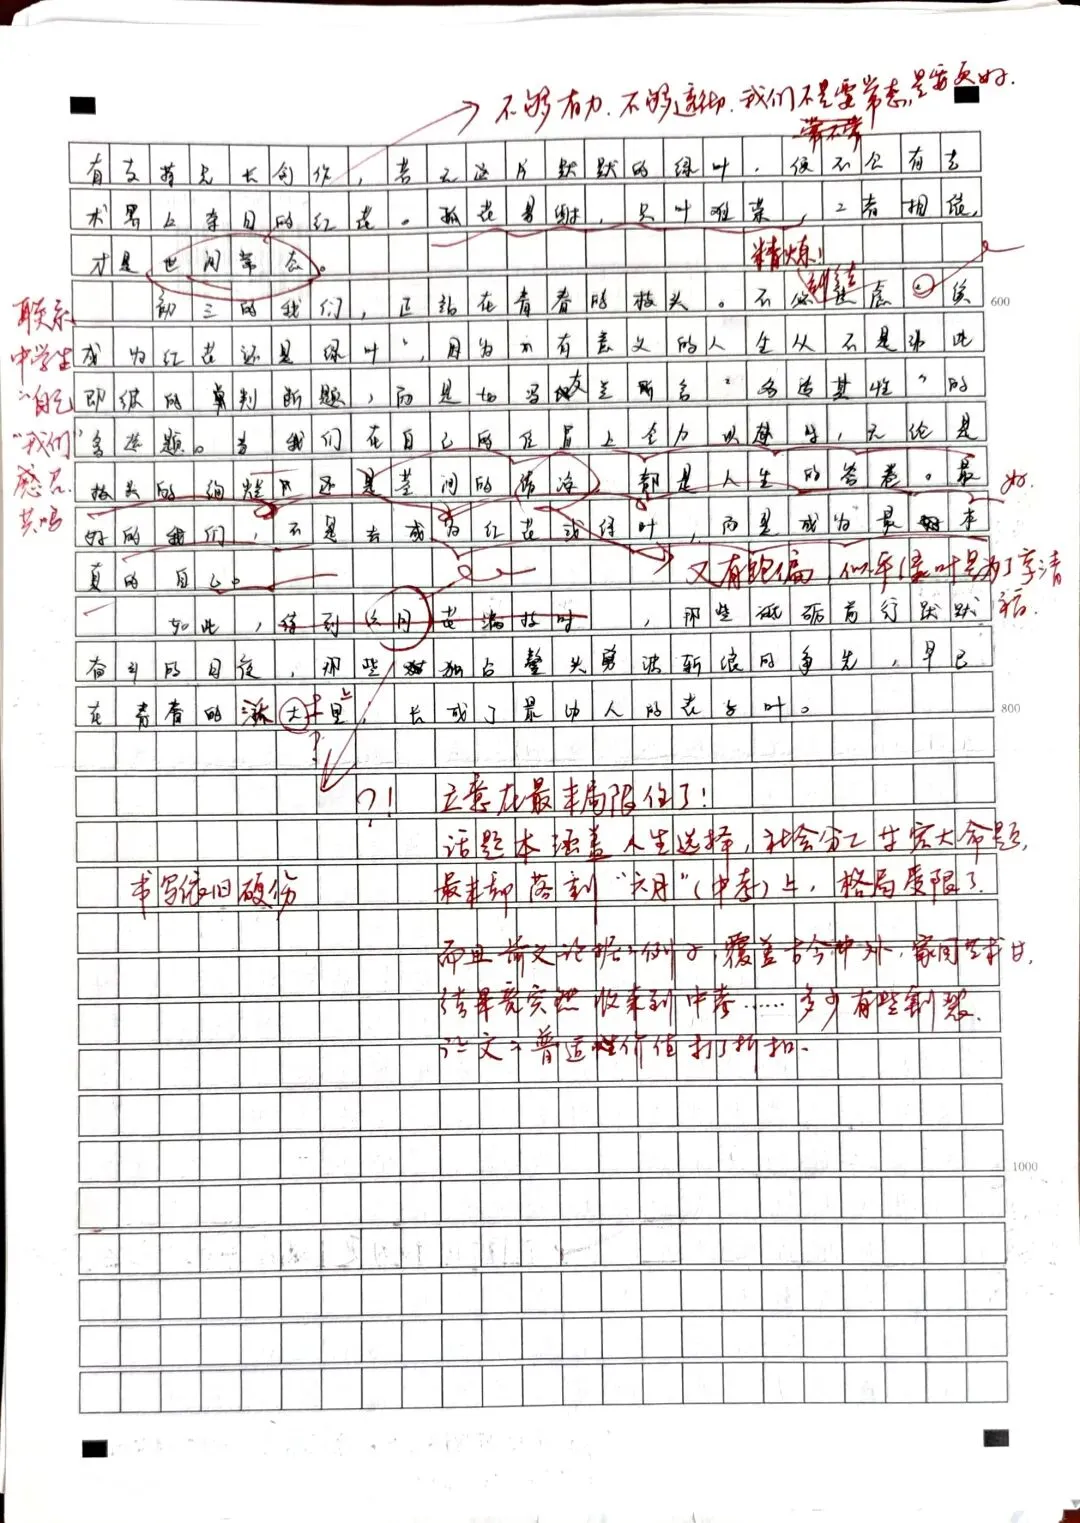 不够有力，不够透彻，我们不是要常态，是要更好.
有支持兄长创作，若无这片默默的绿叶，便不会有艺
术界上夺目的红花。孤花易谢，只叶难荣，二者相依，
才是世间常态。
精炼！
初三的我们，正站在青春的枝头。不必焦虑
600
成为红花还是绿叶，因为有意义的人生从不是非此
即彼的判断题，而是如冯友兰所言"各适其性"的
多选题。当我们在自己的位置上全力以赴时，无论是
枝头的绚烂还是茎间的脉络，都是人生的答卷。最
好的我们，不是去成为红花或绿叶，而是成为最本
真的自己。
联系
中学生
"自己"
"我们"
感召
共鸣
好.
又有跑偏，似乎绿叶是为了享清福.
如此，待到六月花满枝时，那些砥砺前行默默
奋斗的日夜，那些独占鳌头勇立新浪的争先，早已
在青春的沃土里，长成了最动人的花与叶。
800
？！
立意在最末局限住了！
话题本涵盖人生选择，社会分工等宏大命题，
书写依旧硬伤
最末却落到"六月"（中考）上，格局受限了.
而且前文论据例子覆盖古今中外，家国艺术等，
结果竟突然收束到中考……多少有些割裂.
让文之普适性价值打了折扣.
1000